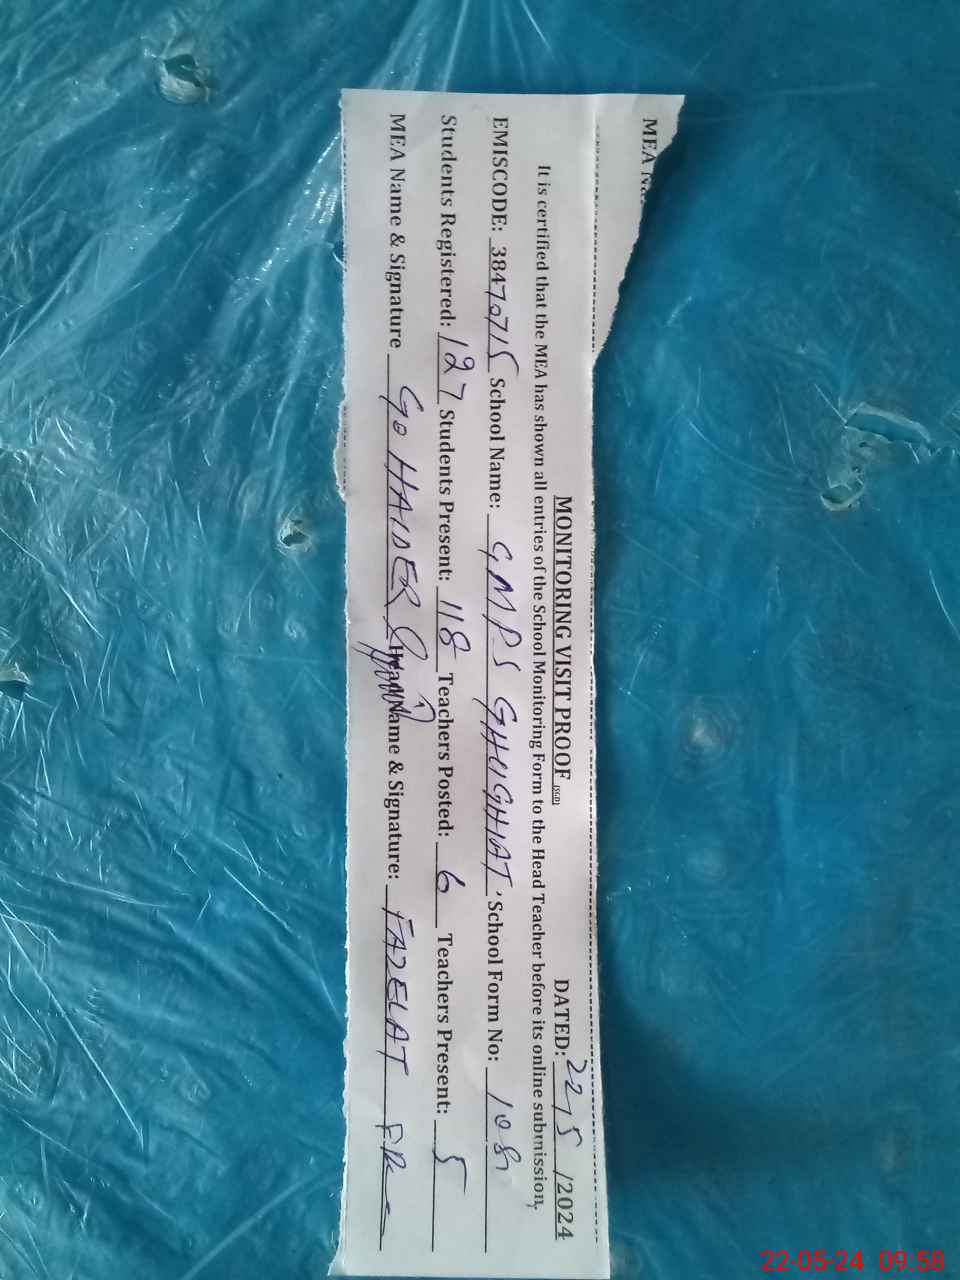 MEA
MONITORING VISIT PROOF (SGD) DATED: 22/5/2024
It is certified that the MEA has shown all entries of the School Monitoring Form to the Head Teacher before its online submission,
EMISCODE: 38470715 School Name: GMPS GHUGHIAT School Form No: 108
Students Registered: 127 Students Present: 118 Teachers Posted: 6 Teachers Present: 5
MEA Name & Signature GO HAIDER Name & Signature: FAZELAT
22-05-24 09:58